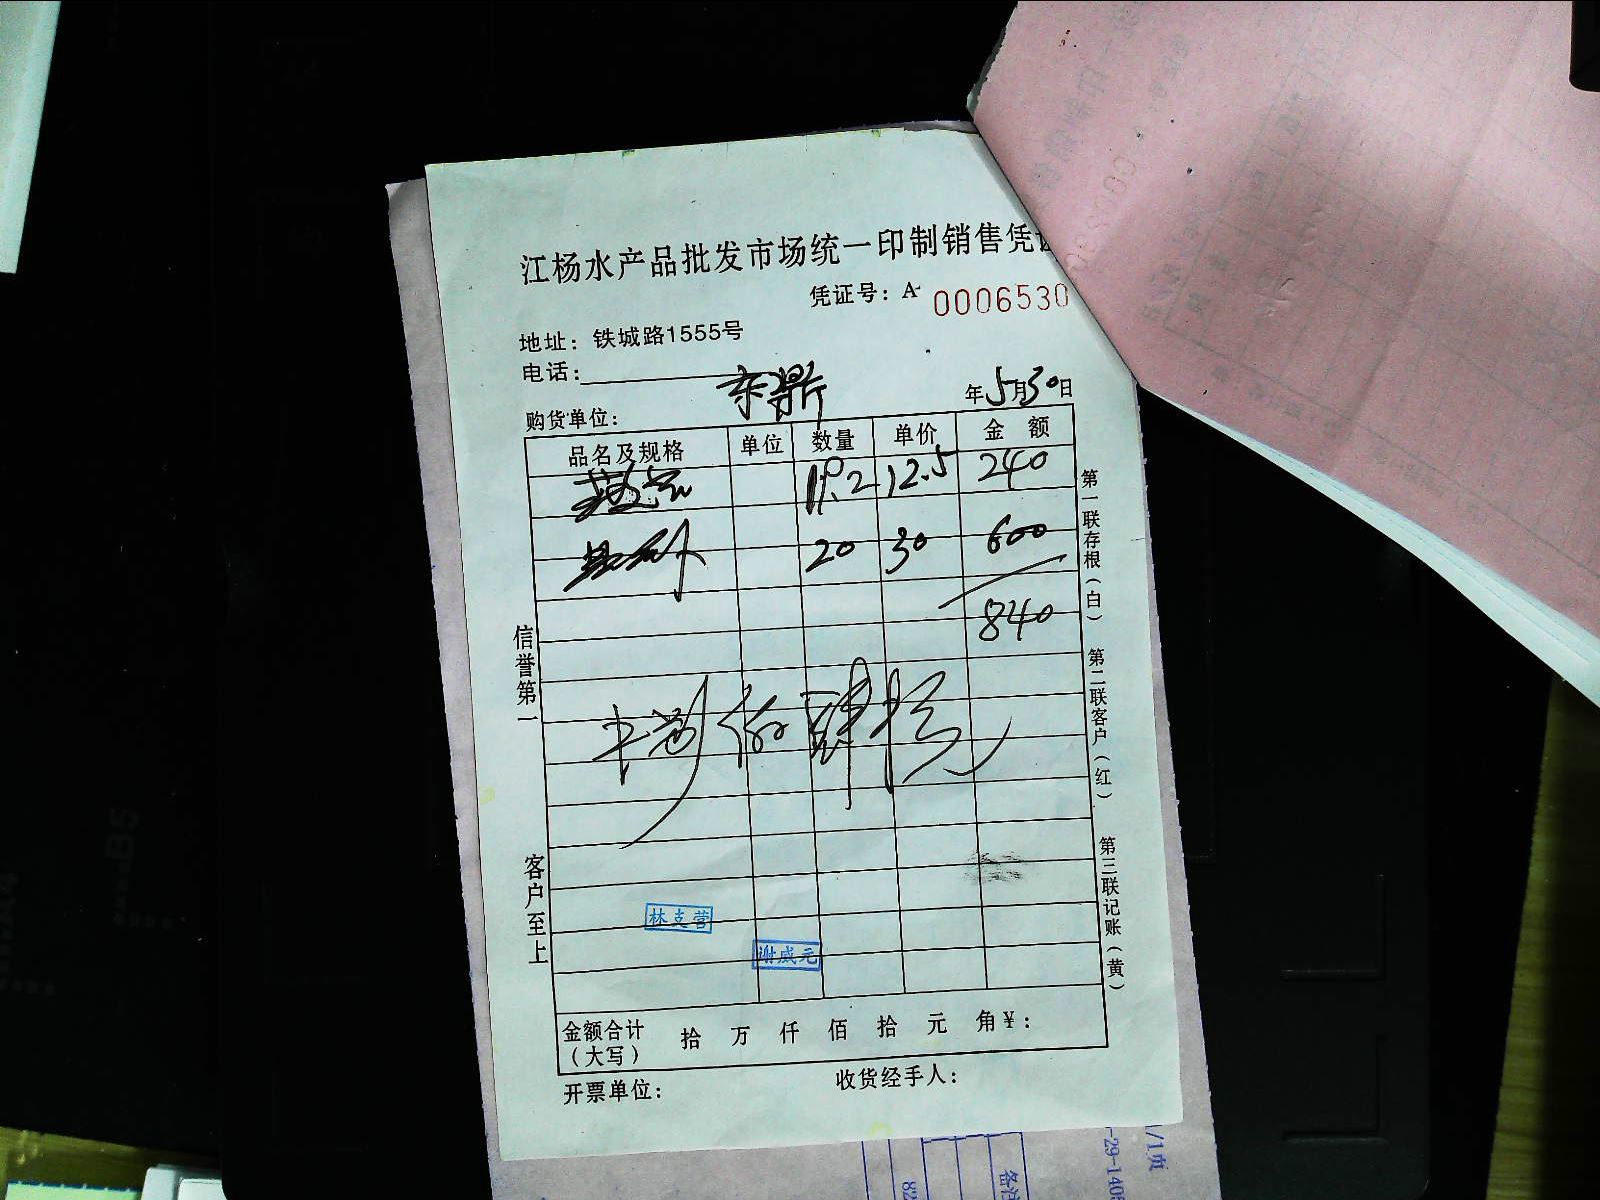 江杨水产品批发市场统一印制销售凭证
凭证号：A 0006530
地址：铁城路1555号
电话：
东鼎
年5月30日
购货单位：
品名及规格 单位 数量 单价 金额
19.2 12.5 240
20 30 600
840
捌佰肆拾元
信誉第一
客户至上
第一联存根（白）
第二联客户（红）
第三联记账（黄）
林支营
谢威元
金额合计 拾 万 仟 佰 拾 元 角￥：
（大写）
开票单位： 收货经手人：
1/1页
备注